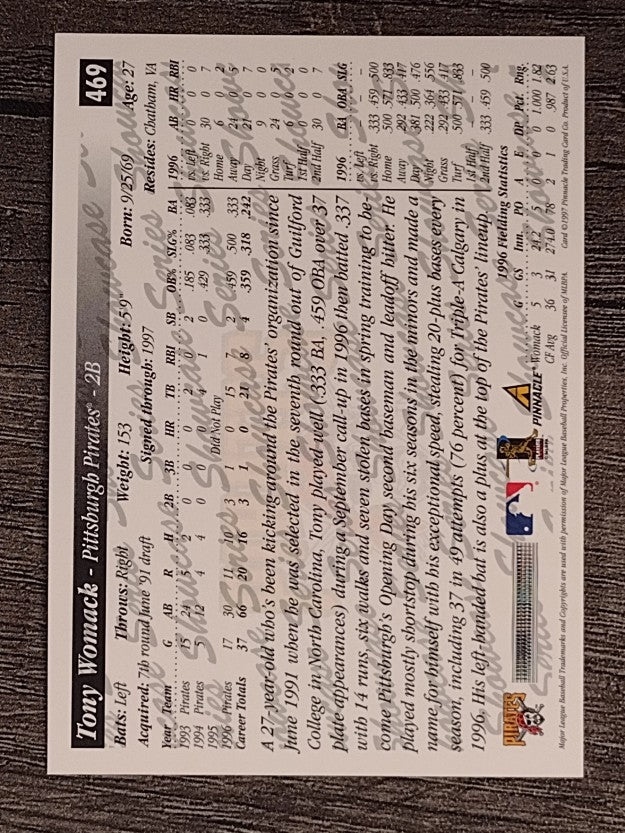 Tony Womack - Pittsburgh Pirates® - 2B 469
Bats: Left Throws: Right Weight: 153 Height: 5'9" Born: 9/25/69 Age: 27
Acquired: 7th round June '91 draft Signed through: 1997 Resides: Chatham, VA
Year Team G AB R H 2B 3B HR TB RBI SB OB% SLG% BA
1993 Pirates 15 24 5 2 0 0 0 2 0 2 .185 .083 .083
1994 Pirates 5 12 4 4 0 0 0 4 1 0 .429 .333 .333
1995 Did Not Play
1996 Pirates 17 30 11 10 3 1 0 15 7 2 .459 .500 .333
Career Totals 37 66 20 16 3 1 0 21 8 4 .359 .318 .242
1996 AB HR RBI
vs. Left 0 0 0
vs. Right 30 0 7
Home 6 0 2
Away 24 0 5
Day 21 0 7
Night 9 0 0
Grass 24 0 5
Turf 6 0 2
1st Half 0 0 0
2nd Half 30 0 7
1996 BA OBA SLG
vs. Left – – –
vs. Right .333 .459 .500
Home .500 .571 .833
Away .292 .433 .417
Day .381 .500 .476
Night .222 .364 .556
Grass .292 .433 .417
Turf .500 .571 .833
1st Half – – –
2nd Half .333 .459 .500
A 27-year-old who's been kicking around the Pirates' organization since
June 1991 when he was selected in the seventh round out of Guilford
College in North Carolina, Tony played well (.333 BA, .459 OBA over 37
plate appearances) during a September call-up in 1996 then batted .337
with 14 runs, six walks and seven stolen bases in spring training to be-
come Pittsburgh's Opening Day second baseman and leadoff hitter. He
played mostly shortstop during his six seasons in the minors and made a
name for himself with his exceptional speed, stealing 20-plus bases every
season, including 37 in 49 attempts (76 percent) for Triple-A Calgary in
1996. His left-handed bat is also a plus at the top of the Pirates' lineup.
1996 Fielding Statistics
G GS Inn. PO A E DP Pct. Rng.
Womack 5 3 24.2 5 0 0 0 1.000 1.82
CF Avg 36 31 274.0 78 2 1 0 .987 2.63
PIRATES
PINNACLE
Major League Baseball Trademarks and Copyrights are used with permission of Major League Baseball Properties, Inc. Official Licensee of MLBPA. Card ©1997 Pinnacle Trading Card Co. Product of U.S.A.
Showcase Series